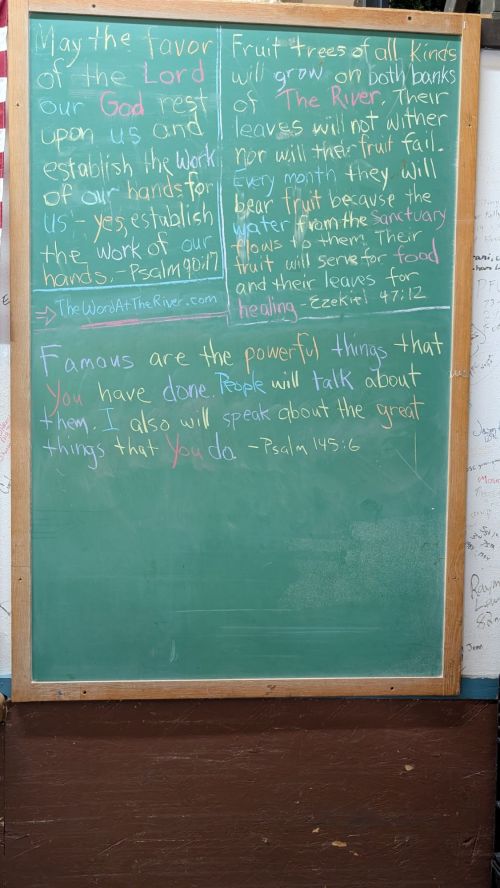 May the favor
of the Lord
our God rest
upon us and
establish the work
of our hands for
us - yes, establish
the work of our
hands. - Psalm 90:17
TheWordAtTheRiver.com
Fruit trees of all kinds
will grow on both banks
of The River. Their
leaves will not wither
nor will their fruit fail.
Every month they will
bear fruit because the
water from the Sanctuary
flows to them. Their
fruit will serve for food
and their leaves for
healing - Ezekiel 47:12
Famous are the powerful things that
You have done. People will talk about
them. I also will speak about the great
things that You do. - Psalm 145:6